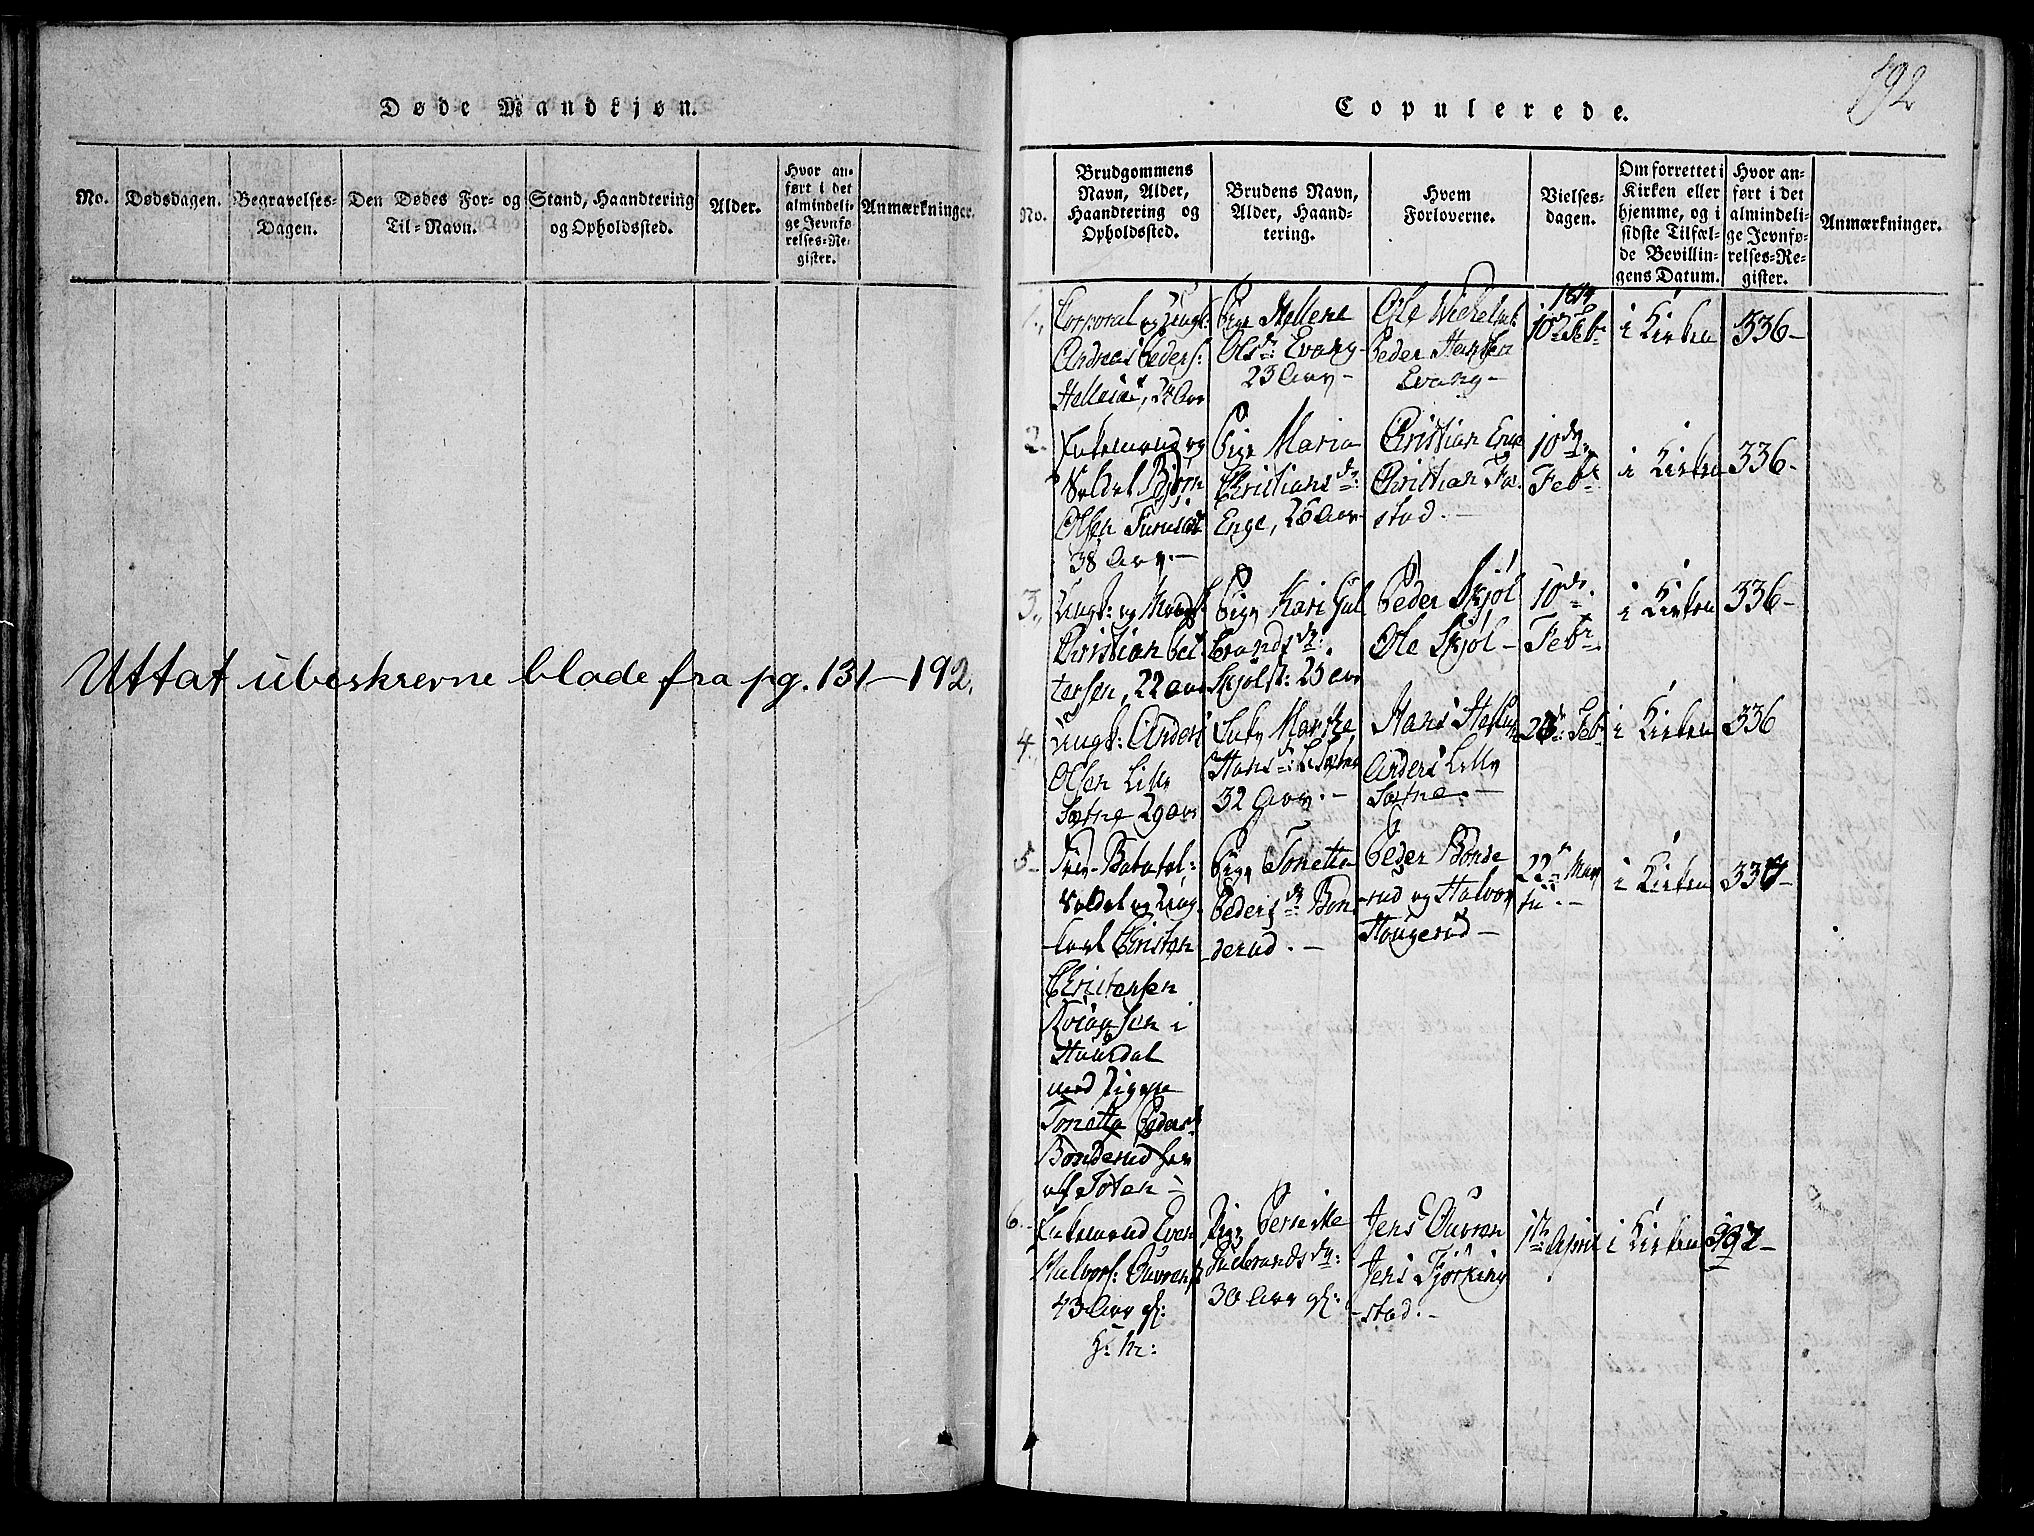 Døde Mandkjøn.
No.
Dødsdagen.
Begravelses-
Dagen.
Den Dødes For- og
Til-Navn.
Stand, Haandtering
og Opholdssted.
Alder.
Hvor an-
ført i det
almindeli-
ge Jevnfø-
relses-Re-
gister.
Anmærkninger.
Uttat ubeskrevne blade fra pg. 131-192.
192
Copulerede.
No.
Brudgommens
Navn, Alder,
Haandtering og
Opholdssted.
Brudens Navn,
Alder, Haand-
tering.
Hvem
Forloverne.
Vielses-
dagen.
Om forrettet i
Kirken eller
hjemme, og i
sidste Tilfæl-
de Bevillin-
gens Datum.
Hvor an-
ført i det
almindeli-
ge Jevnfø-
relses-Re-
gister.
Anmærkninger.
1.,
Corporal og Ungk:
Andreas Peders:
24 Aar
Pige Hellene
Olsdr: Evang-
23 Aar-
Ole
Peder Hansen
Evang-
1814
10de Febr
i Kirken
336-
2.
Enkemand og
Soldat Bjørn
Olsen
38 Aar.-
Pige Maria
Christiansdr:
Enge, 26 Aar
Christian Enge
Christian Fos-
stad.-
10de
Febr
i Kirken
336-
3.,
Ungk: og
Christian Pet-
tersen, 22 aar
Pige Kari Gul
brandsdr:
Skjølst: 25 aar
Peder Skjøl
Ole Skjøl-
10de
Febr
i Kirken
336-
4.
Ungk: Anders
Olsen Lille
Sætne 29 aar
Enke Marthe
Hansdr:
32 Aar.-
Hans
Anders Lille
Sætne.-
Febr
i Kirken
336
5-
Soldat og Ung-
karl Christen
Christensen
i
Hurdal
med Pigen
Tonette Pedersdr
Bonderud her
af Toten-
Pige Tonette
Pedersdr: Bon
derud.-
Peder Bonde
rud og Halvor
Hougerud-
22de Mar
tii.-
i Kirken
337-
6.-
Enkemand Even
Halvors:
43 Aar gl:
Pige Pernille
Gulbrandsdr:
30 Aar gl:
Jens
Jens
stad.-
1ste April
i Kirken